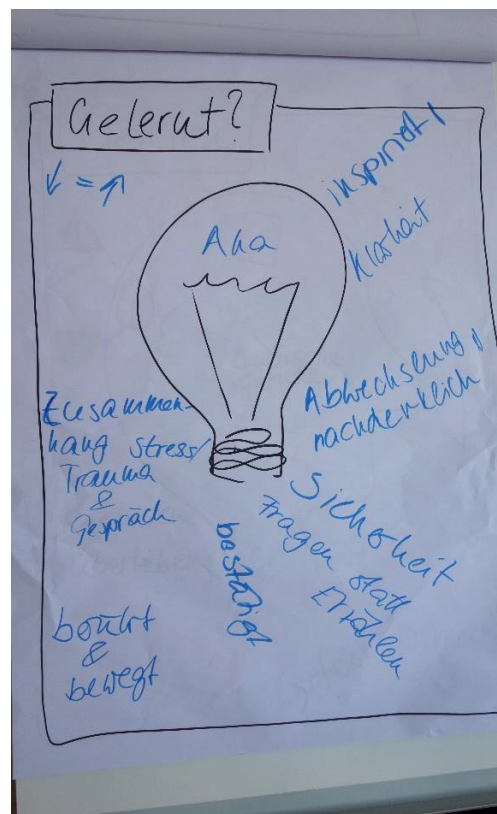 Gelernt?
↓ = ↑
Aha
inspiriert!
Klarheit
Abwechslung!!
nachdenklich
Zusammen-
hang Stress/
Trauma
&
Gespräch
Sicherheit
Fragen statt
Erzählen
bestätigt
berührt
&
bewegt